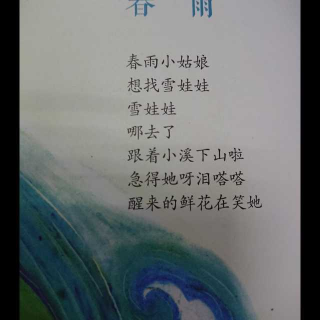 春雨
春雨小姑娘
想找雪娃娃
雪娃娃
哪去了
跟着小溪下山啦
急得她呀泪嗒嗒
醒来的鲜花在笑她